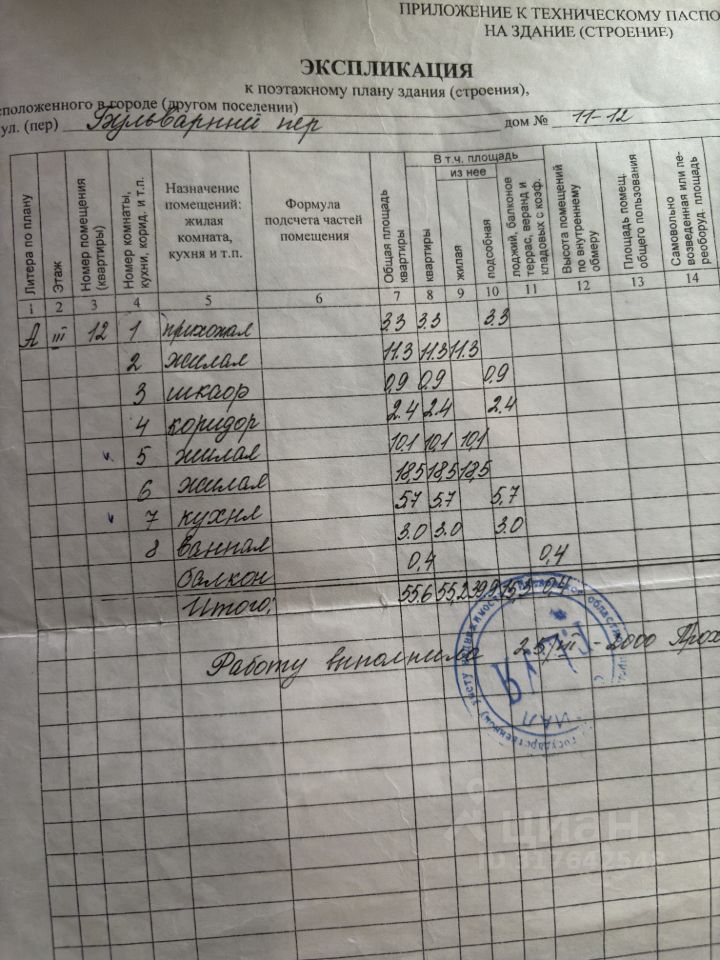 ПРИЛОЖЕНИЕ К ТЕХНИЧЕСКОМУ ПАСПО
НА ЗДАНИЕ (СТРОЕНИЕ)
ЭКСПЛИКАЦИЯ
к поэтажному плану здания (строения),
сположенного в городе (другом поселении)
ул. (пер) Бульварный пер дом № 11-12
Литера по плану
Этаж
Номер помещения (квартиры)
Номер комнаты, кухни, корид. и т.п.
Назначение помещений: жилая комната, кухня и т.п.
Формула подсчета частей помещения
Общая площадь квартиры
В т.ч. площадь
квартиры
из нее
жилая
подсобная
лоджий, балконов террас, веранд и кладовых с коэф.
Высота помещений по внутреннему обмеру
Площадь помещ. общего пользования
Самовольно возведенная или переоборуд. площадь
1 2 3 4 5 6 7 8 9 10 11 12 13 14
А III 12 1 прихожая 3.3 3.3 3.3
2 жилая 11.3 11.3 11.3
3 шкаф 0,9 0,9 0,9
4 коридор 2.4 2.4 2.4
5 жилая 10,1 10,1 10,1
6 жилая 18,5 18,5 18,5
7 кухня 5,7 5,7 5,7
8 ванная 3.0 3.0 3.0
балкон 0,4 0,4
Итого: 55,6 55,2 39,9 15,3 0,4
Работу выполнила 25/III-2000 Прох
циан
ID 317642542